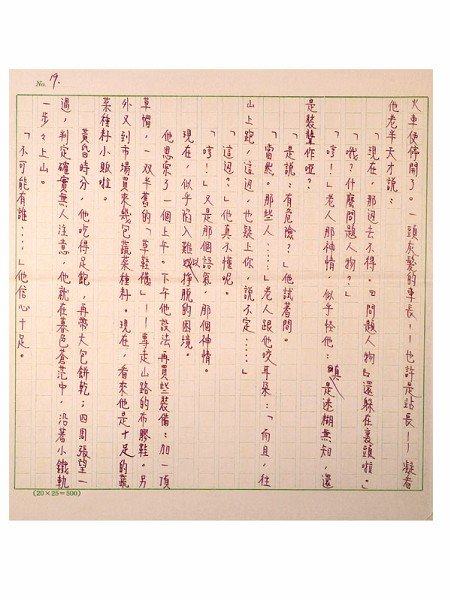 No. 19.
火車便停開了。一頭灰髮的車長——也許是站長——凝看
他老半天才說:
「現在,那過去不得。『問題人物』還躲在裏頭啦。」
「哦?什麼問題人物?」
「哼!」老人那神情,似乎怪他:真是透糊無知,還
是裝聾作啞?
「是說:有危險?」他試著問。
「當然。那些人……」老人跟他咬耳朵:「而且,往
山上跑,這迥,也疑上你,說不定……」
「這迥?」他真不懂呢。
「哼!」又是那個語氣,那個神情。
現在,似乎陷入難以掙脫的困境。
他思索了一個上午。下午他設法再買些裝備:加一頂
草帽,一双半舊的「草鞋儀」——專走山路的布膠鞋。另
外又到市場買來幾包蔬菜種籽。現在,看來他是十足的蔬
菜種籽小販啦。
黃昏時分,他吃得足飽,再帶大包餅乾;四周張望一
遍,判定確實無人注意,他就在暮色蒼茫中,沿著小鐵軌
一步々上山。
「不可能有誰……」他信心十足。
(20×25=500)